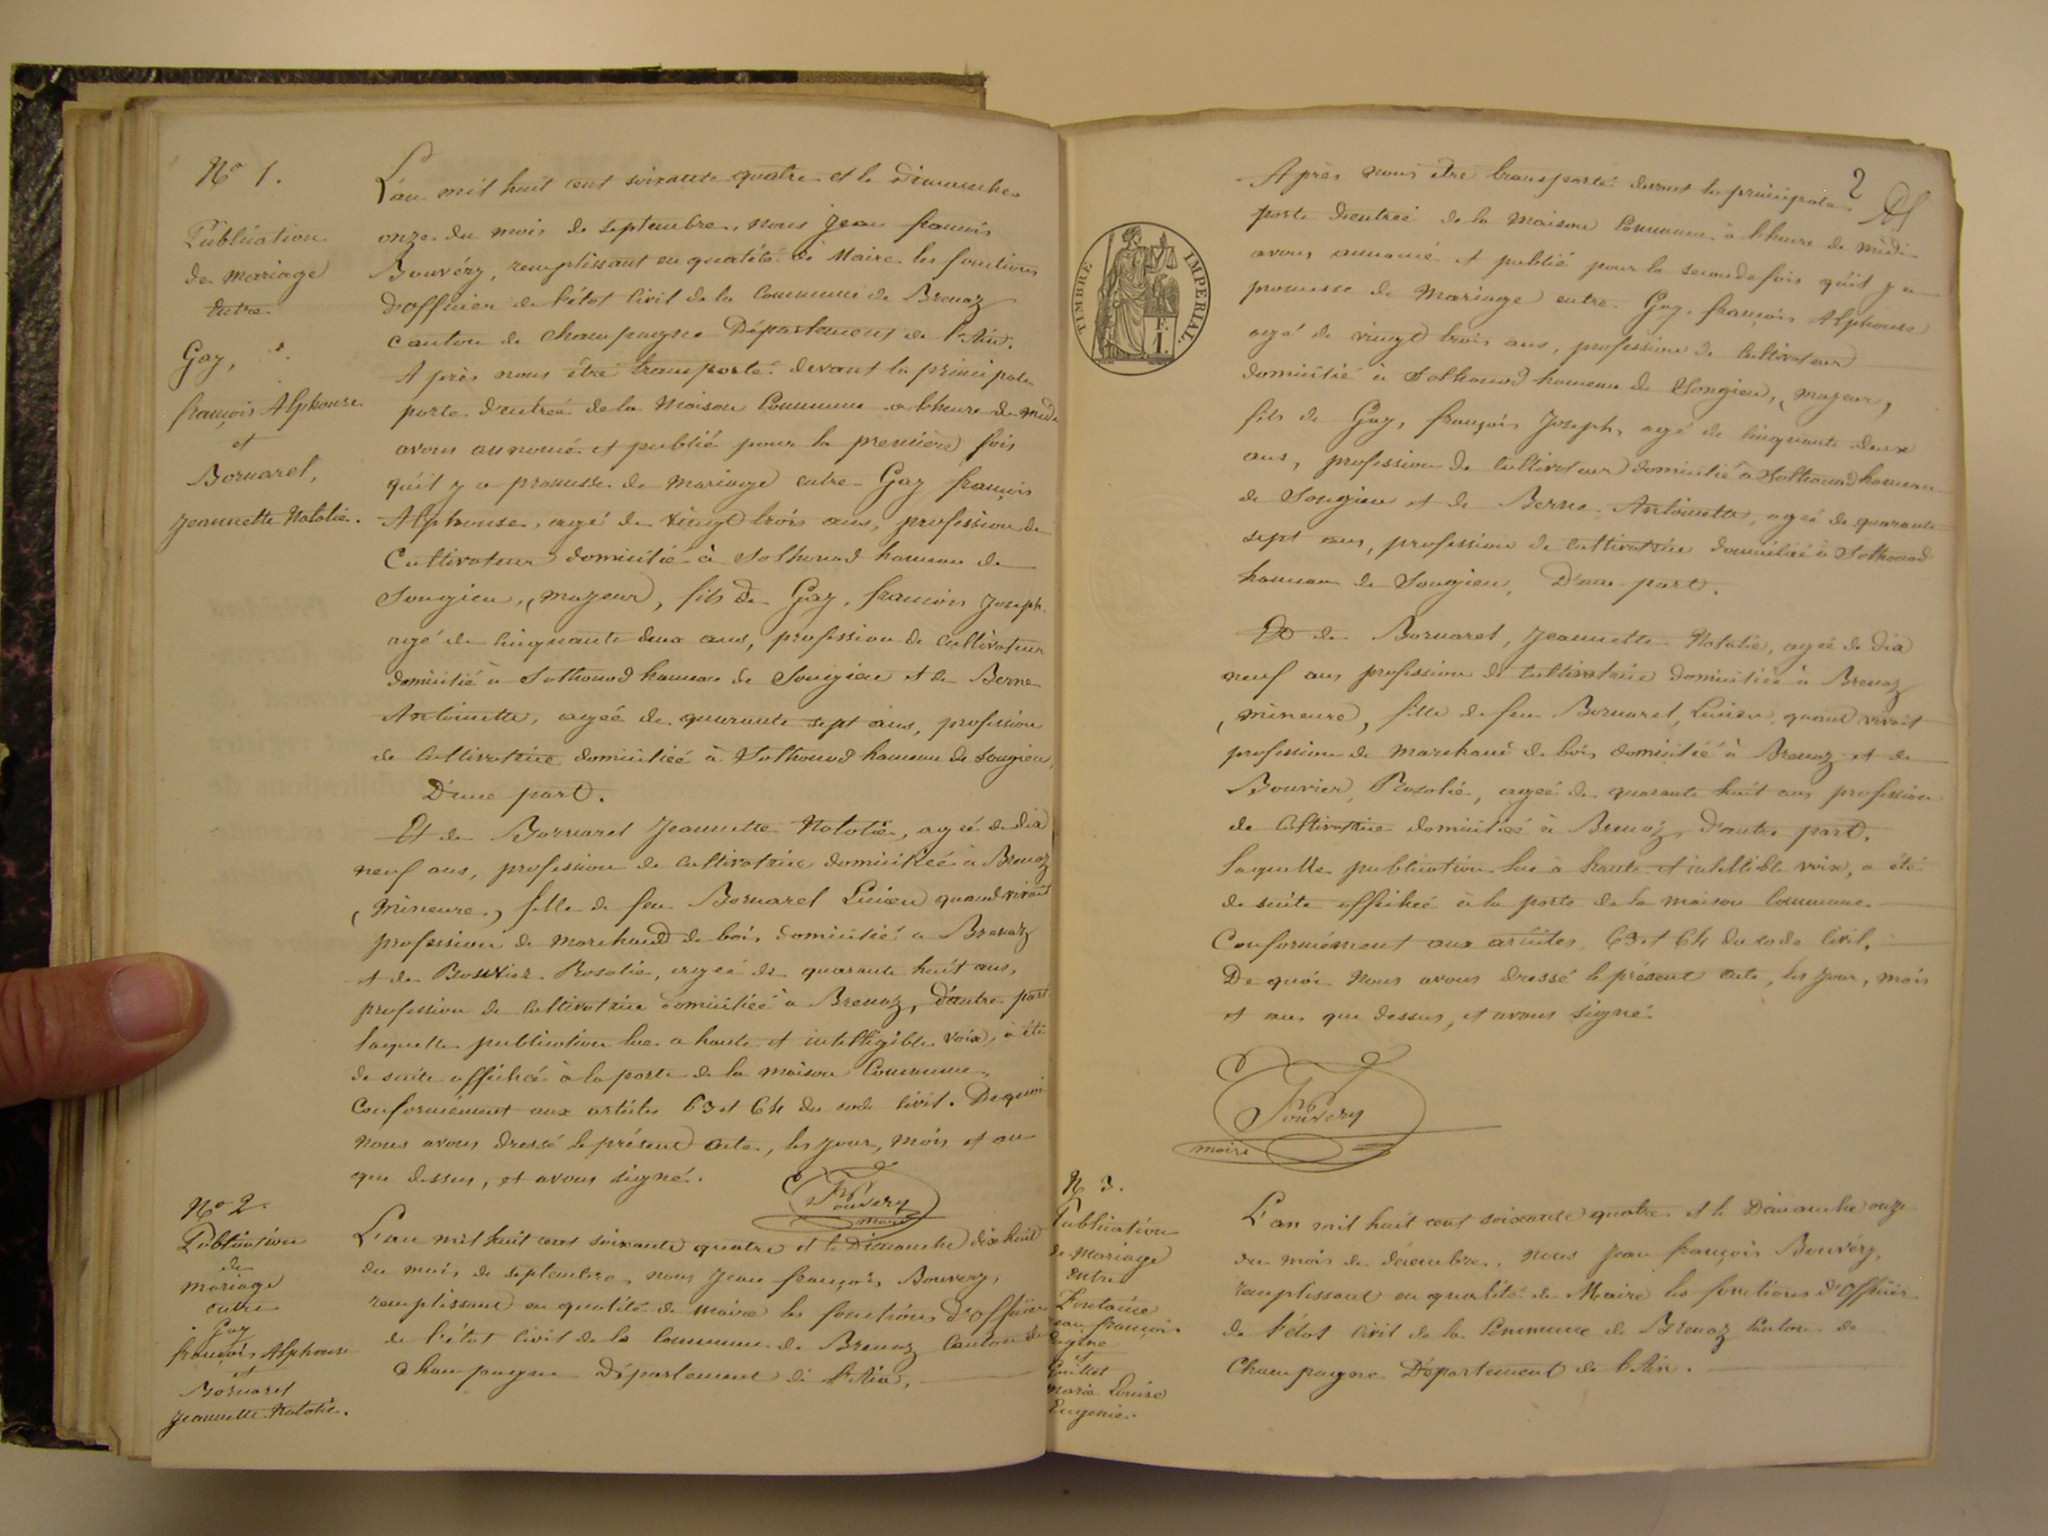 No 1.
Publication
de mariage
Entre
Gay,
françois Alphonse
et
Bornarel,
Jeannette Natalie.
L'an mil huit cent soixante quatre et le Dimanche
onze du mois de septembre, nous Jean françois
Bouvéry, remplissant en qualité de Maire les fonctions
d'officier de l'état Civil de la Commune de Brenaz
canton de champagne Département de l'Ain.
Après nous être transporté devant la principale
porte d'entrée de la Maison Commune a l'heure de midi
avons annoncé et publié pour la première fois
qu'il y a promesse de Mariage entre Gay françois
Alphonse, agé de vingt trois ans, profession de
Cultivateur domicilié à Sothonod hameau de
Songieu, (majeur), fils de Gay, françois Joseph
agé de cinquante deux ans, profession de cultivateur
domicilié à Sothonod hameau de Songieu et de Berne
Antoinette, agée de quarante sept ans, profession
de Cultivatrice domiciliée à Sothonod hameau de Songieu,
D'une part.
Et de Bornarel Jeannette Natalie, agée de dix
neuf ans, profession de Cultivatrice domiciliée à Brenaz
(mineure), fille de feu Bornarel Lucien quand vivait
profession de Marchand de bois domicilié a Brenaz
et de Bouvier Rosalie, agée de quarante huit ans,
profession de Cultivatrice domiciliée à Brenaz, d'autre part
laquelle publication lue a haute et intelligible voix, a été
de suite affichée à la porte de la maison Commune,
Conformément aux articles 63 et 64 du code Civil. De quoi
nous avons dressé le présent acte, les jour, mois et an
que dessus, et avons signé.
Bouvery
maire
No 2.
Publication
de
mariage
entre
Gay
françois Alphonse
et
Bornarel
Jeannette Natalie.
L'an mil huit cent soixante quatre et le Dimanche dix huit
du mois de septembre, nous Jean françois Bouvery,
remplissant en qualité de Maire les fonctions d'officier
de l'état civil de la Commune de Brenaz Canton de
Champagne Département de l'Ain.
2
TIMBRE IMPERIAL
Après nous être transporté devant la principale
porte d'entrée de la Maison Commune à l'heure de midi
avons annoncé et publié pour la seconde fois qu'il y a
promesse de Mariage entre Gay, françois Alphonse
agé de vingt trois ans, profession de Cultivateur
domicilié à Sothonod hameau de Songieu, (majeur)
fils de Gay, françois Joseph, agé de cinquante deux
ans, profession de Cultivateur domicilié à Sothonod hameau
de Songieu et de Berne Antoinette, agée de quarante
sept ans, profession de Cultivatrice domiciliée à Sothonod
hameau de Songieu, D'une part.
Et de Bornarel, Jeannette Natalie, agée de dix
neuf ans profession de Cultivatrice domiciliée à Brenaz
(mineure), fille de feu Bornarel, Lucien, quand vivait
profession de Marchand de bois domicilié à Brenaz et de
Bouvier, Rosalie, agée de quarante huit ans profession
de Cultivatrice domiciliée à Brenaz, d'autre part.
laquelle publication lue à haute et intellible voix, a été
de suite affichée à la porte de la maison Commune
Conformément aux articles 63 et 64 du code Civil,
De quoi Nous avons dressé le présent acte, les jour, mois
et an, que dessus, et avons signé.
Bouvery
maire
N 3.
Publication
de Mariage
entre
Fontaine
Jean françois
et
Guillet
Maria Louise
Eugenie.
L'an mil huit cent soixante quatre et le Dimanche onze
du mois de décembre, nous Jean françois Bouvéry,
remplissant en qualité de Maire les fonctions d'officier
de l'état civil de la Commune de Brenaz Canton de
Champagne Département de l'Ain.